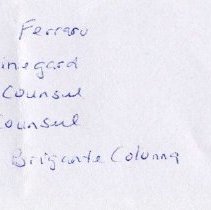 Ferraro
inegard
Counsul
Counsul
Brigante Colonna